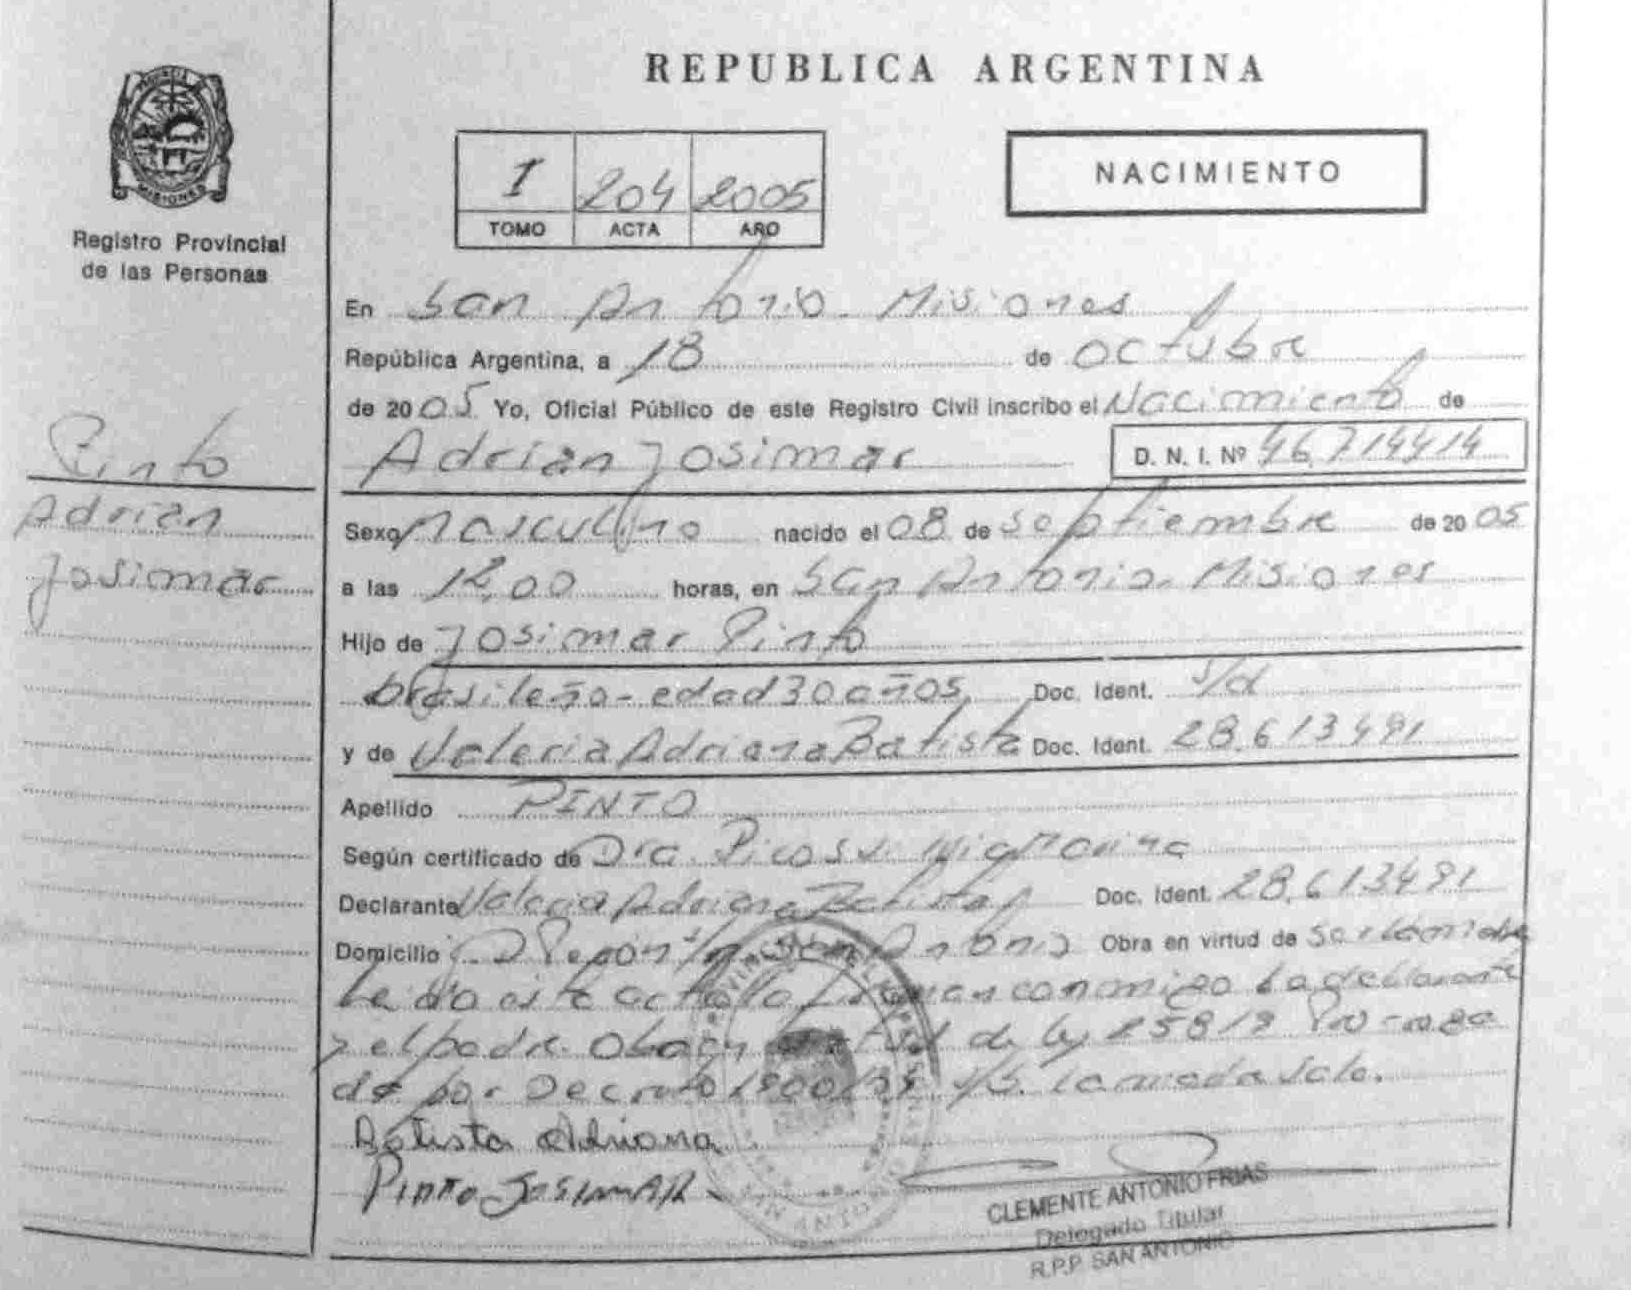 REPUBLICA ARGENTINA
PROVINCIA
MISIONES
Registro Provincial
de las Personas
I 204 2005
TOMO ACTA AÑO
NACIMIENTO
En San Antonio - Misiones
República Argentina, a 18 de octubre
de 2005 Yo, Oficial Público de este Registro Civil inscribo el Nacimiento de
Adrian Josimar D. N. I. Nº 46.714414
Pinto
Adrian
Josimar
Sexo Masculino nacido el 08 de septiembre de 2005
a las 12,00 horas, en San Antonio - Misiones
Hijo de Josimar Pinto
brasileño - edad 30 años Doc. Ident. s/d
y de Valeria Adriana Batista Doc. Ident. 28.613491
Apellido PINTO
Según certificado de Dra.
Declarante Valeria Adriana Batista Doc. Ident. 28.613491
Domicilio Perón s/n San Antonio Obra en virtud de
Leída esta acta la firman conmigo la declarante
y el padre. Obra en virtud de ley 25819
do por Decreto
Batista Adriana
PINTO JOSIMAR
CLEMENTE ANTONIO FRIAS
Delegado Titular
R.P.P. SAN ANTONIO